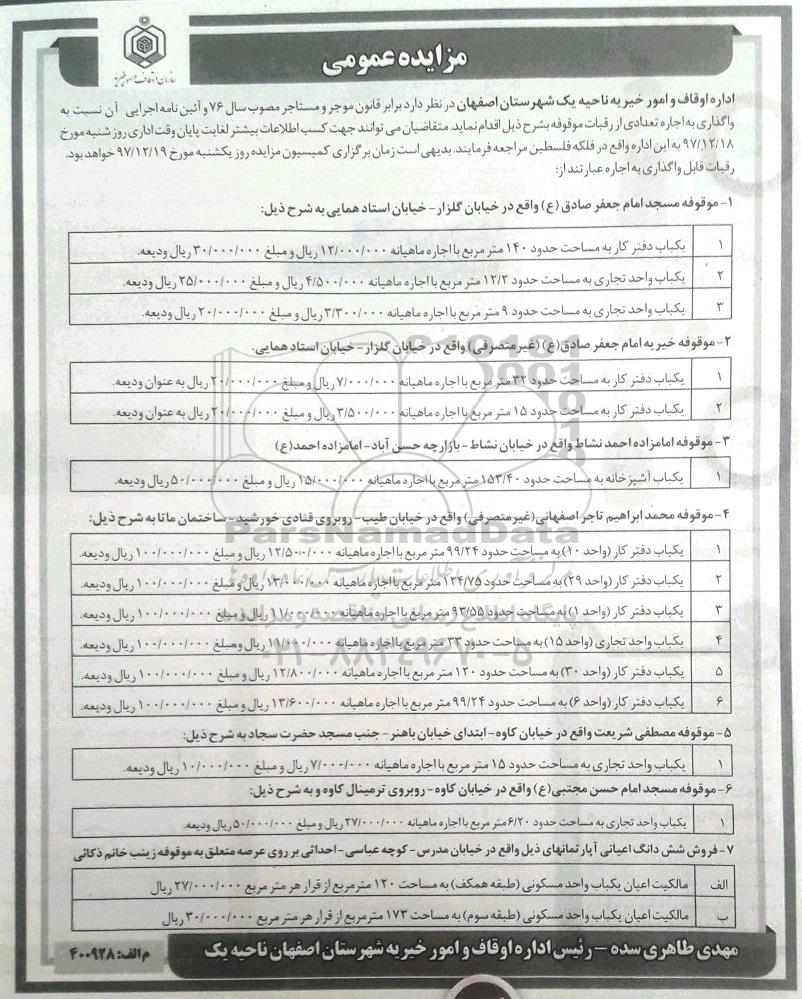 مزایده عمومی
سازمان اوقاف و امور خیریه
اداره اوقاف و امور خیریه ناحیه یک شهرستان اصفهان در نظر دارد برابر قانون موجر و مستاجر مصوب سال ۷۶ و آئین نامه اجرایی آن نسبت به
واگذاری به اجاره تعدادی از رقبات موقوفه بشرح ذیل اقدام نماید. متقاضیان می توانند جهت کسب اطلاعات بیشتر لغایت پایان وقت اداری روز شنبه مورخ
۹۷/۱۲/۱۸ به این اداره واقع در فلکه فلسطین مراجعه فرمایند. بدیهی است زمان برگزاری کمیسیون مزایده روز یکشنبه مورخ ۹۷/۱۲/۱۹ خواهد بود.
رقبات قابل واگذاری به اجاره عبارتند از:
۱- موقوفه مسجد امام جعفر صادق (ع) واقع در خیابان گلزار - خیابان استاد همایی به شرح ذیل:
۱ یکباب دفتر کار به مساحت حدود ۱۴۰ متر مربع با اجاره ماهیانه ۱۲/۰۰۰/۰۰۰ ریال و مبلغ ۳۰/۰۰۰/۰۰۰ ریال ودیعه.
۲ یکباب واحد تجاری به مساحت حدود ۱۲/۲ متر مربع با اجاره ماهیانه ۴/۵۰۰/۰۰۰ ریال و مبلغ ۲۵/۰۰۰/۰۰۰ ریال ودیعه.
۳ یکباب واحد تجاری به مساحت حدود ۹ متر مربع با اجاره ماهیانه ۳/۳۰۰/۰۰۰ ریال و مبلغ ۲۰/۰۰۰/۰۰۰ ریال ودیعه.
۲- موقوفه خیریه امام جعفر صادق(ع) (غیرمتصرفی) واقع در خیابان گلزار - خیابان استاد همایی.
۱ یکباب دفتر کار به مساحت حدود ۳۲ متر مربع با اجاره ماهیانه ۷/۰۰۰/۰۰۰ ریال و مبلغ ۲۰/۰۰۰/۰۰۰ ریال به عنوان ودیعه.
۲ یکباب دفتر کار به مساحت حدود ۱۵ متر مربع با اجاره ماهیانه ۳/۵۰۰/۰۰۰ ریال و مبلغ ۲۰/۰۰۰/۰۰۰ ریال به عنوان ودیعه.
۳- موقوفه امامزاده احمد نشاط واقع در خیابان نشاط - بازارچه حسن آباد - امامزاده احمد(ع)
۱ یکباب آشپزخانه به مساحت حدود ۱۵۳/۴۰ متر مربع با اجاره ماهیانه ۱۵/۰۰۰/۰۰۰ ریال و مبلغ ۵۰/۰۰۰/۰۰۰ ریال ودیعه.
۴- موقوفه محمد ابراهیم تاجر اصفهانی (غیرمتصرفی) واقع در خیابان طیب - روبروی قنادی خورشید - ساختمان مانا به شرح ذیل:
ParsNamadData
۱ یکباب دفتر کار (واحد ۱۰) به مساحت حدود ۹۹/۲۴ متر مربع با اجاره ماهیانه ۱۲/۵۰۰/۰۰۰ ریال و مبلغ ۱۰۰/۰۰۰/۰۰۰ ریال ودیعه.
۲ یکباب دفتر کار (واحد ۲۹) به مساحت حدود ۱۲۴/۷۵ متر مربع با اجاره ماهیانه ۱۳/۰۰۰/۰۰۰ ریال و مبلغ ۱۰۰/۰۰۰/۰۰۰ ریال ودیعه.
۳ یکباب دفتر کار (واحد ۱) به مساحت حدود ۹۳/۵۵ متر مربع با اجاره ماهیانه ۱۱/۰۰۰/۰۰۰ ریال و مبلغ ۱۰۰/۰۰۰/۰۰۰ ریال ودیعه.
۴ یکباب واحد تجاری (واحد ۱۵) به مساحت حدود ۳۳ متر مربع با اجاره ماهیانه ۱۱/۰۰۰/۰۰۰ ریال و مبلغ ۱۰۰/۰۰۰/۰۰۰ ریال ودیعه.
۰۲۱-۸۸۳۴۹۶۷۰-۵
۵ یکباب دفتر کار (واحد ۳۰) به مساحت حدود ۱۲۰ متر مربع با اجاره ماهیانه ۱۲/۸۰۰/۰۰۰ ریال و مبلغ ۱۰۰/۰۰۰/۰۰۰ ریال ودیعه.
۶ یکباب دفتر کار (واحد ۶) به مساحت حدود ۹۹/۲۴ متر مربع با اجاره ماهیانه ۱۳/۶۰۰/۰۰۰ ریال و مبلغ ۱۰۰/۰۰۰/۰۰۰ ریال ودیعه.
۵- موقوفه مصطفی شریعت واقع در خیابان کاوه - ابتدای خیابان باهنر - جنب مسجد حضرت سجاد به شرح ذیل:
۱ یکباب واحد تجاری به مساحت حدود ۱۵ متر مربع با اجاره ماهیانه ۷/۰۰۰/۰۰۰ ریال و مبلغ ۱۰/۰۰۰/۰۰۰ ریال ودیعه.
۶- موقوفه مسجد امام حسن مجتبی(ع) واقع در خیابان کاوه - روبروی ترمینال کاوه و به شرح ذیل:
۱ یکباب واحد تجاری به مساحت حدود ۶/۲۰ متر مربع با اجاره ماهیانه ۲۷/۰۰۰/۰۰۰ ریال و مبلغ ۵۰/۰۰۰/۰۰۰ ریال ودیعه.
۷- فروش شش دانگ اعیانی آپارتمانهای ذیل واقع در خیابان مدرس - کوچه عباسی - احداثی بر روی عرصه متعلق به موقوفه زینب خانم ذکائی
الف مالکیت اعیان یکباب واحد مسکونی (طبقه همکف) به مساحت ۱۲۰ مترمربع از قرار هر متر مربع ۲۷/۰۰۰/۰۰۰ ریال
ب مالکیت اعیان یکباب واحد مسکونی (طبقه سوم) به مساحت ۱۷۳ مترمربع از قرار هر متر مربع ۳۰/۰۰۰/۰۰۰ ریال
مهدی طاهری سده - رئیس اداره اوقاف و امور خیریه شهرستان اصفهان ناحیه یک
م الف: ۴۰۰۹۲۸